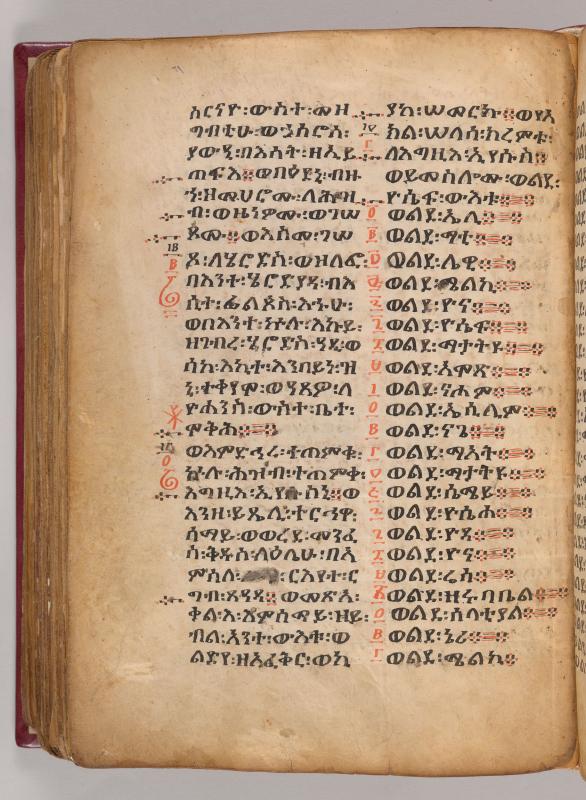 ሥርናዮ፡ውስተ፡መዝ
ግብቲሁ፡ወኃሰሮሰ፡
ያውዒ፡በእሳት፡ዘኢይ
ጠፍእ።ወበዕደኒ፡ብዙ
ኀ፡ዘመሀሮሙ፡ለሕዝ
ብ፡ወዜነዎሙ፡ወገሠ
ጾሙ።ወእስመ፡ገሠ
ጾ፡ለሄሮድስ፡ወዘለፎ፡
በእንተ፡ሄሮድያዳ፡ብእ
ሲተ፡ፊልጶስ፡እኁሁ፡
ወበእንተ፡ኵሉ፡እኩይ፡
ዘገብረ፡ሄሮድስ፡ዓዲ፡ወ
ሰከ፡እኪተ፡እንበይነ፡ዝ
ኒ፡ተቀየሞ፡ወዓጸዎ፡ለ
ዮሐንስ፡ውስተ፡ቤተ፡
ሞቅሕ።
ወእምድኅረ፡ተጠምቁ፡
ኵሉ፡ሕዝብ፡ተጠምቀ፡
እግዚእ፡ኢየሱስኒ።ወ
እንዘ፡ይጼሊ፡ተርኅዋ፡
ሰማይ፡ወወረደ፡መንፈ
ስ፡ቅዱስ፡ላዕሌሁ፡በአ
ምሳለ፡ርእየተ፡ር
ግብ፡ጸዓዳ።ወመጽአ፡
ቃል፡እ፡እምሰማይ፡ዘይ፡
ብል፡አንተ፡ውእቱ፡ወ
ልድየ፡ዘአፈቅር፡ወኪ
ያከ፡ሠመርኩ።ወየአ
ክል፡ሠላሰ፡ክረምቱ፡
ለእግዚእ፡ኢየሱስ።
ወይመስሎሙ፡ወልደ፡
ዮሴፍ፡ውእቱ።
ወልደ፡ኤሊ።
ወልደ፡ማቲ።
ወልደ፡ሌዊ።
ወልደ፡ሜልኪ።
ወልደ፡ዮና።
ወልደ፡ዮሴፍ።
ወልደ፡ማታትዩ።
ወልደ፡አሞጽ።
ወልደ፡ናሖም።
ወልደ፡ኤሲሊም።
ወልደ፡ናጌ።
ወልደ፡ማአት።
ወልደ፡ማታትዩ።
ወልደ፡ሴሜይ።
ወልደ፡ዮሴሕ።
ወልደ፡ዮዳ።
ወልደ፡ዮና።
ወልደ፡ሬስ።
ወልደ፡ዘሩባቤል።
ወልደ፡ሰላቲያል።
ወልደ፡ኔሪ።
ወልደ፡ሜልኪ።